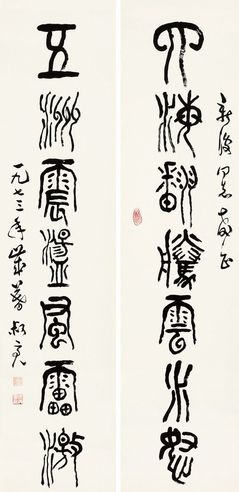 同志教正
四海翻騰雲水怒
五洲震盪風雷激
一九七三年歲暮叔亮